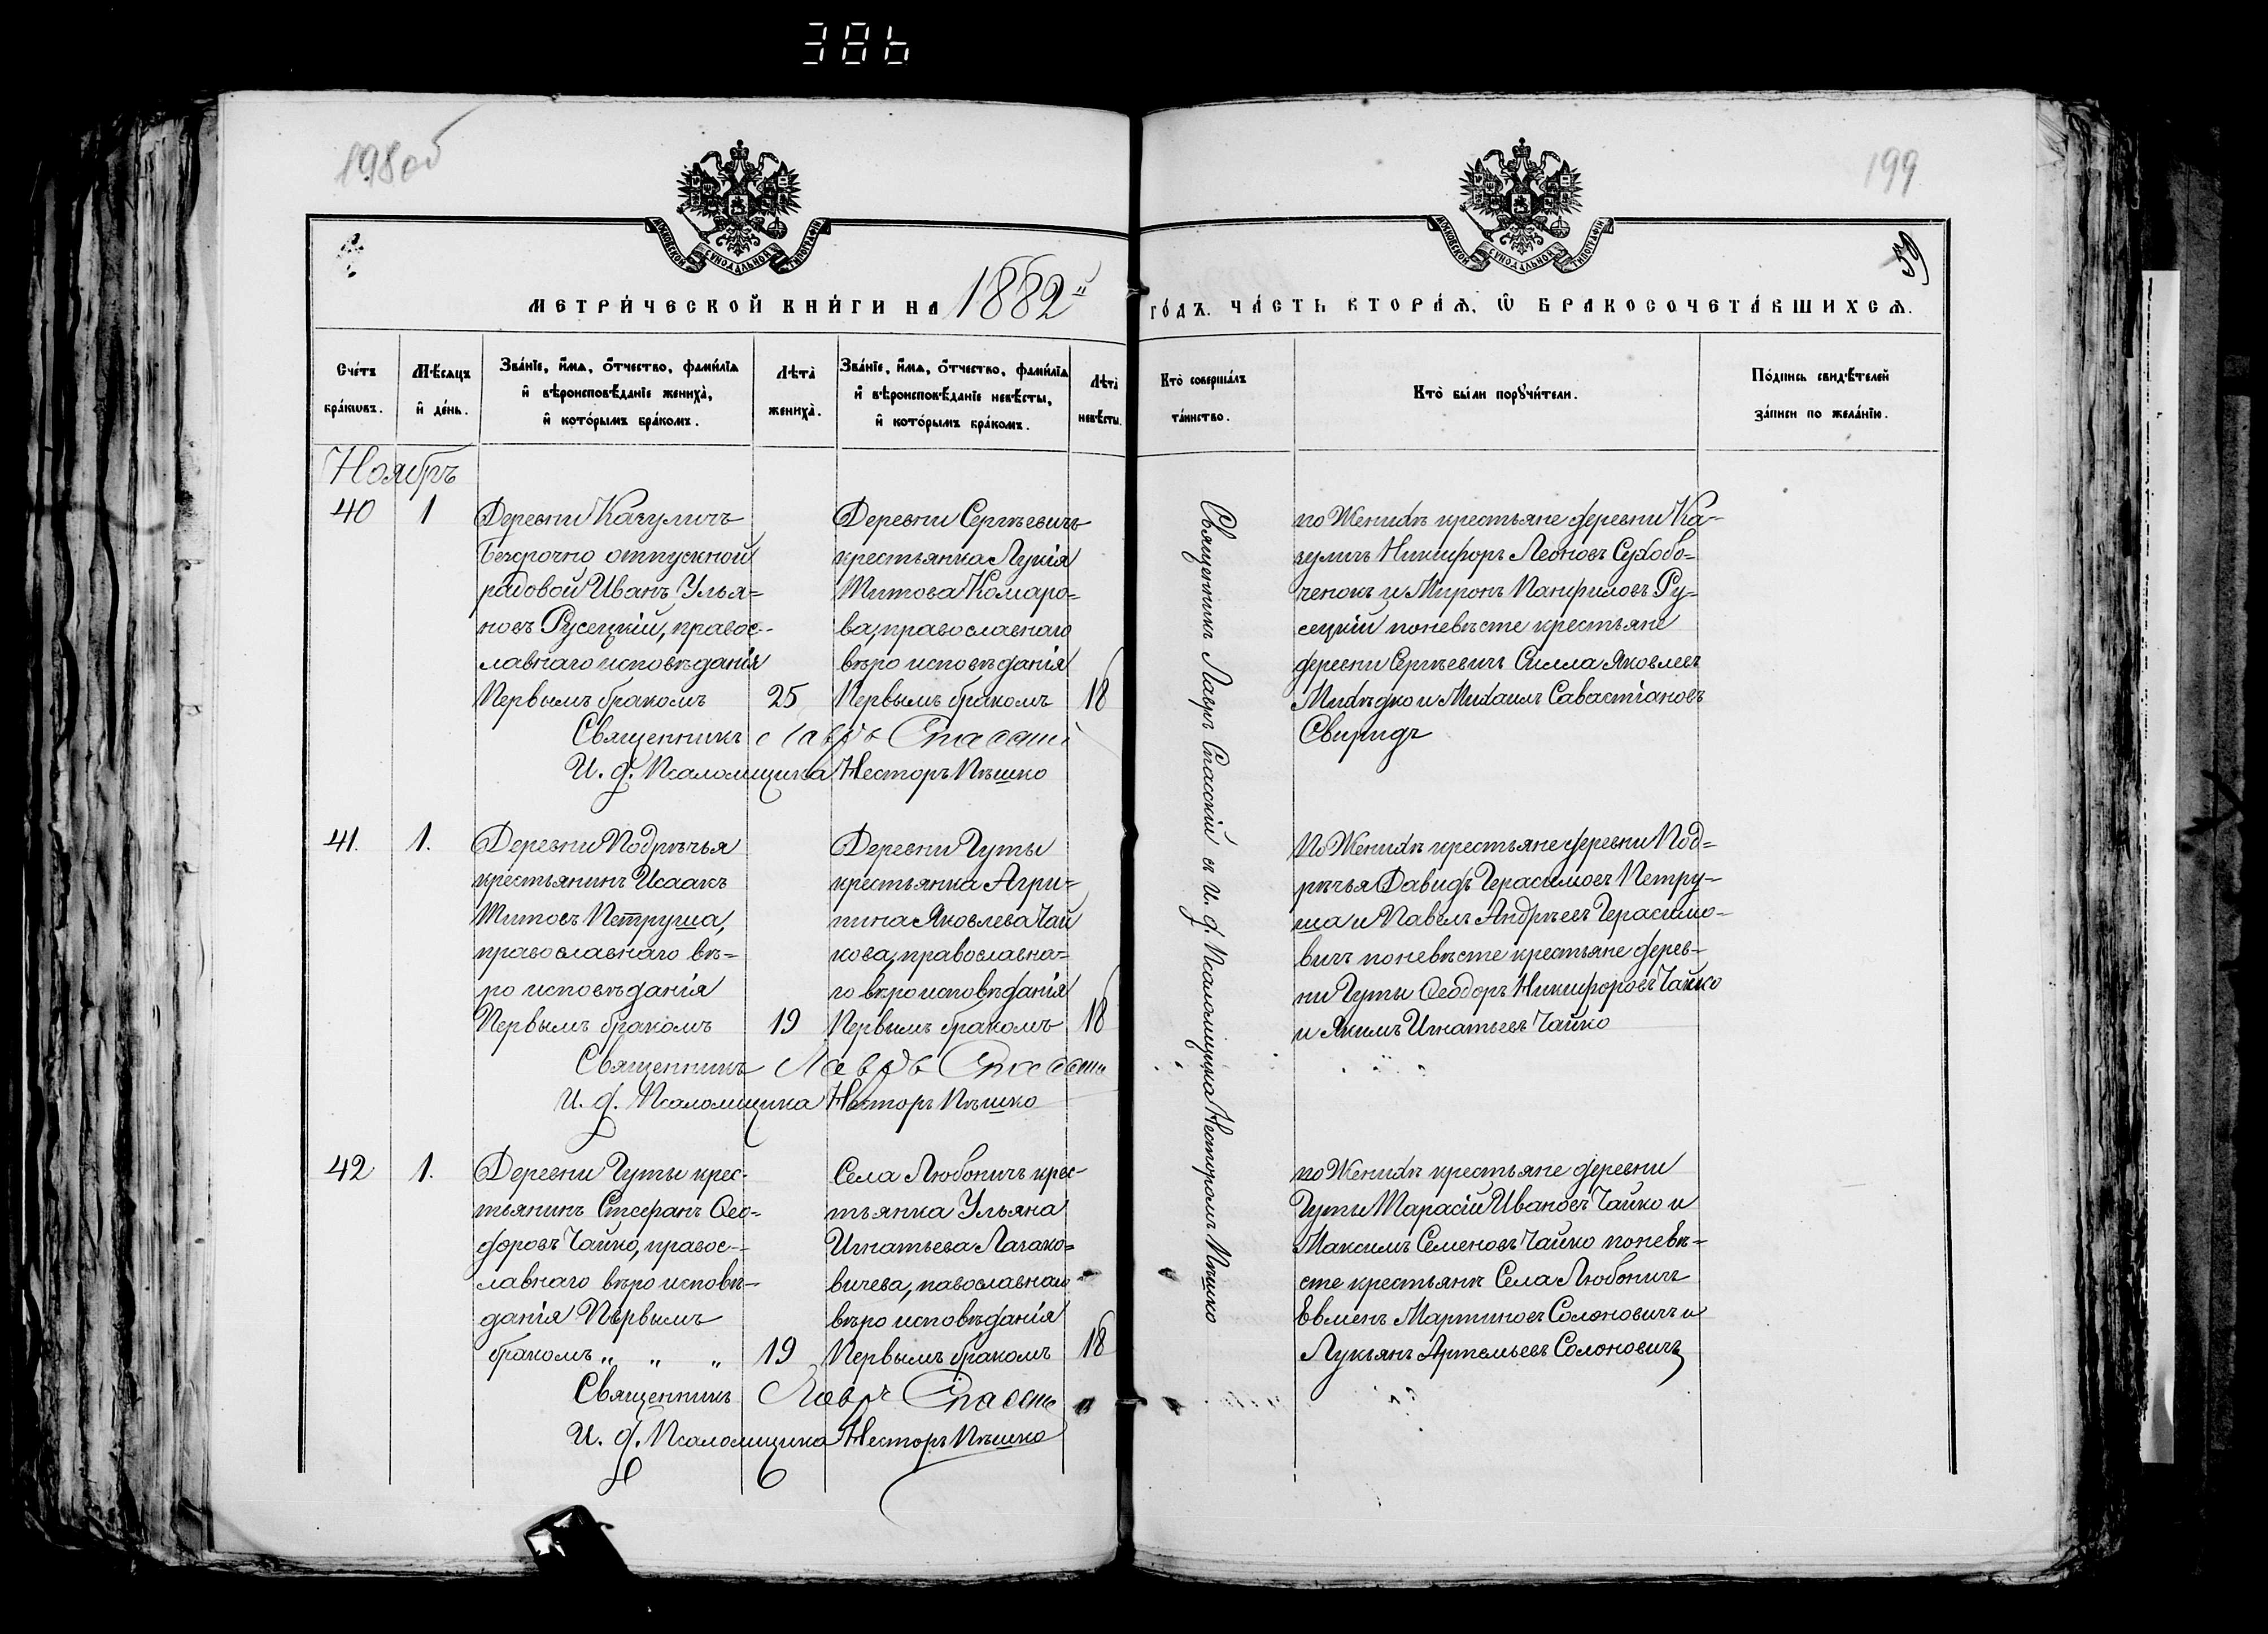 386
198об
199
МОСКОВСКОЙ СѴНОДАЛЬНОЙ ТИПОГРАФІИ
МОСКОВСКОЙ СѴНОДАЛЬНОЙ ТИПОГРАФІИ
МЕТРИ́ЧЕСКОЙ КНИ́ГИ НА 1882й
ГО́ДЪ. ЧА́СТЬ ВТОРА́Ѧ, Ѽ БРАКОСОЧЕТА́ВШИХСѦ.
Сче́тъ бра́кѡвъ.
Мѣ́сяцъ и҆ де́нь.
Зва́нїе, и҆́мѧ, ѻ҆́тчество, фами́лїѧ и҆ вѣроисповѣ́данїе жениха̀, и҆ кото́рымъ бра́комъ.
Лѣта̀ жениха̀.
Зва́нїе, и҆́мѧ, ѻ҆́тчество, фами́лїѧ и҆ вѣроисповѣ́данїе невѣ́сты, и҆ кото́рымъ бра́комъ.
Лѣта̀ невѣ́сты.
Кто̀ соверша́лъ та́инство.
Кто̀ бы́ли порꙋчи́тели.
По́дпись свидѣ́телей за́писи по жела́нїю.
Ноябрь
40
1
Деревни Качуличъ
безсрочно отпускной
рядовой Иванъ Улья=
новъ Русецкій, правос-
лавнаго исповѣданія
Первымъ бракомъ
25
Деревни Сергѣевичъ
крестьянка Лукія
Титова Комаро=
ва, православнаго
вѣроисповѣданія
Первымъ бракомъ
18
Священникъ Лавръ Спасскій
И. д. Псаломщика Несторъ Пѣшко
Священникъ Лавръ Спасскій съ И. д. Псаломщика Несторомъ Пѣшко
по Женихѣ крестьяне деревни Ка-
чуличъ Никифоръ Леоновъ Сухобо=
ченокъ и Миронъ Панфиловъ Ру=
сецкій по невѣсте крестьяне
деревни Сергѣевичъ Силла Яковлевъ
Михѣдко и Михаилъ Савастіановъ
Свиридъ
41.
1.
Деревни Подрѣчья
крестьянинъ Исаакъ
Титовъ Петруша,
православнаго вѣ=
роисповѣданія
Первымъ бракомъ
19
Деревни Гуты
крестьянка Агри=
пина Яковлева Чай
кова, православна=
го вѣроисповѣданія
Первымъ бракомъ
18
Священникъ Лавръ Спасскій
И. д. Псаломщика Несторъ Пѣшко
По Женихѣ крестьяне деревни Под=
рѣчья Давидъ Герасимовъ Петру-
ша и Павелъ Андрѣевъ Герасимо-
вичъ по невѣсте крестьяне дерев-
ни Гуты Ѳеодоръ Никифоровъ Чайко
и Якимъ Игнатьевъ Чайко
42
1.
Деревни Гуты крес-
тьянинъ Стефанъ Ѳео-
доровъ Чайко, правос-
лавнаго вѣроисповѣ-
данія Первымъ
бракомъ „ „ „
19
Села Любоничъ крес-
тьянка Ульяна
Игнатьева Лагако=
вичева, павославнаго
вѣроисповѣданія
Первымъ бракомъ
18
Священникъ Лавръ Спасскій
И. д. Псаломщика Несторъ Пѣшко
по Женихѣ крестьяне деревни
Гуты Тарасій Ивановъ Чайко и
Максимъ Семеновъ Чайко по невѣ-
сте крестьяне Села Любоничъ
Евменъ Мартиновъ Солоновичъ и
Лукьянъ Артемьевъ Солоновичъ